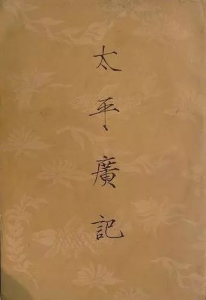 太平廣記